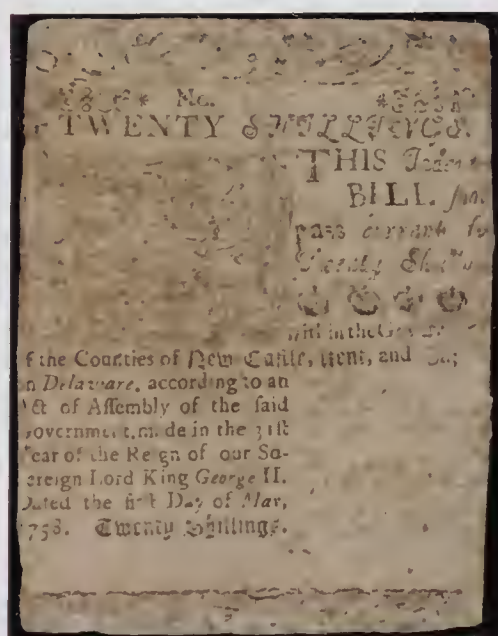 No.
TWENTY SHILLINGS.
THIS Inden
BILL
pass currant fo
Twenty Shill
within the Gov
f the Counties of New Castle, Kent, and Suſ
n Delaware, according to an
Act of Aſſembly of the ſaid
overnment, made in the 31ſt
Year of the Reign of our So-
ereign Lord King George II.
Dated the firſt Day of May,
1758. Twenty Shillings.